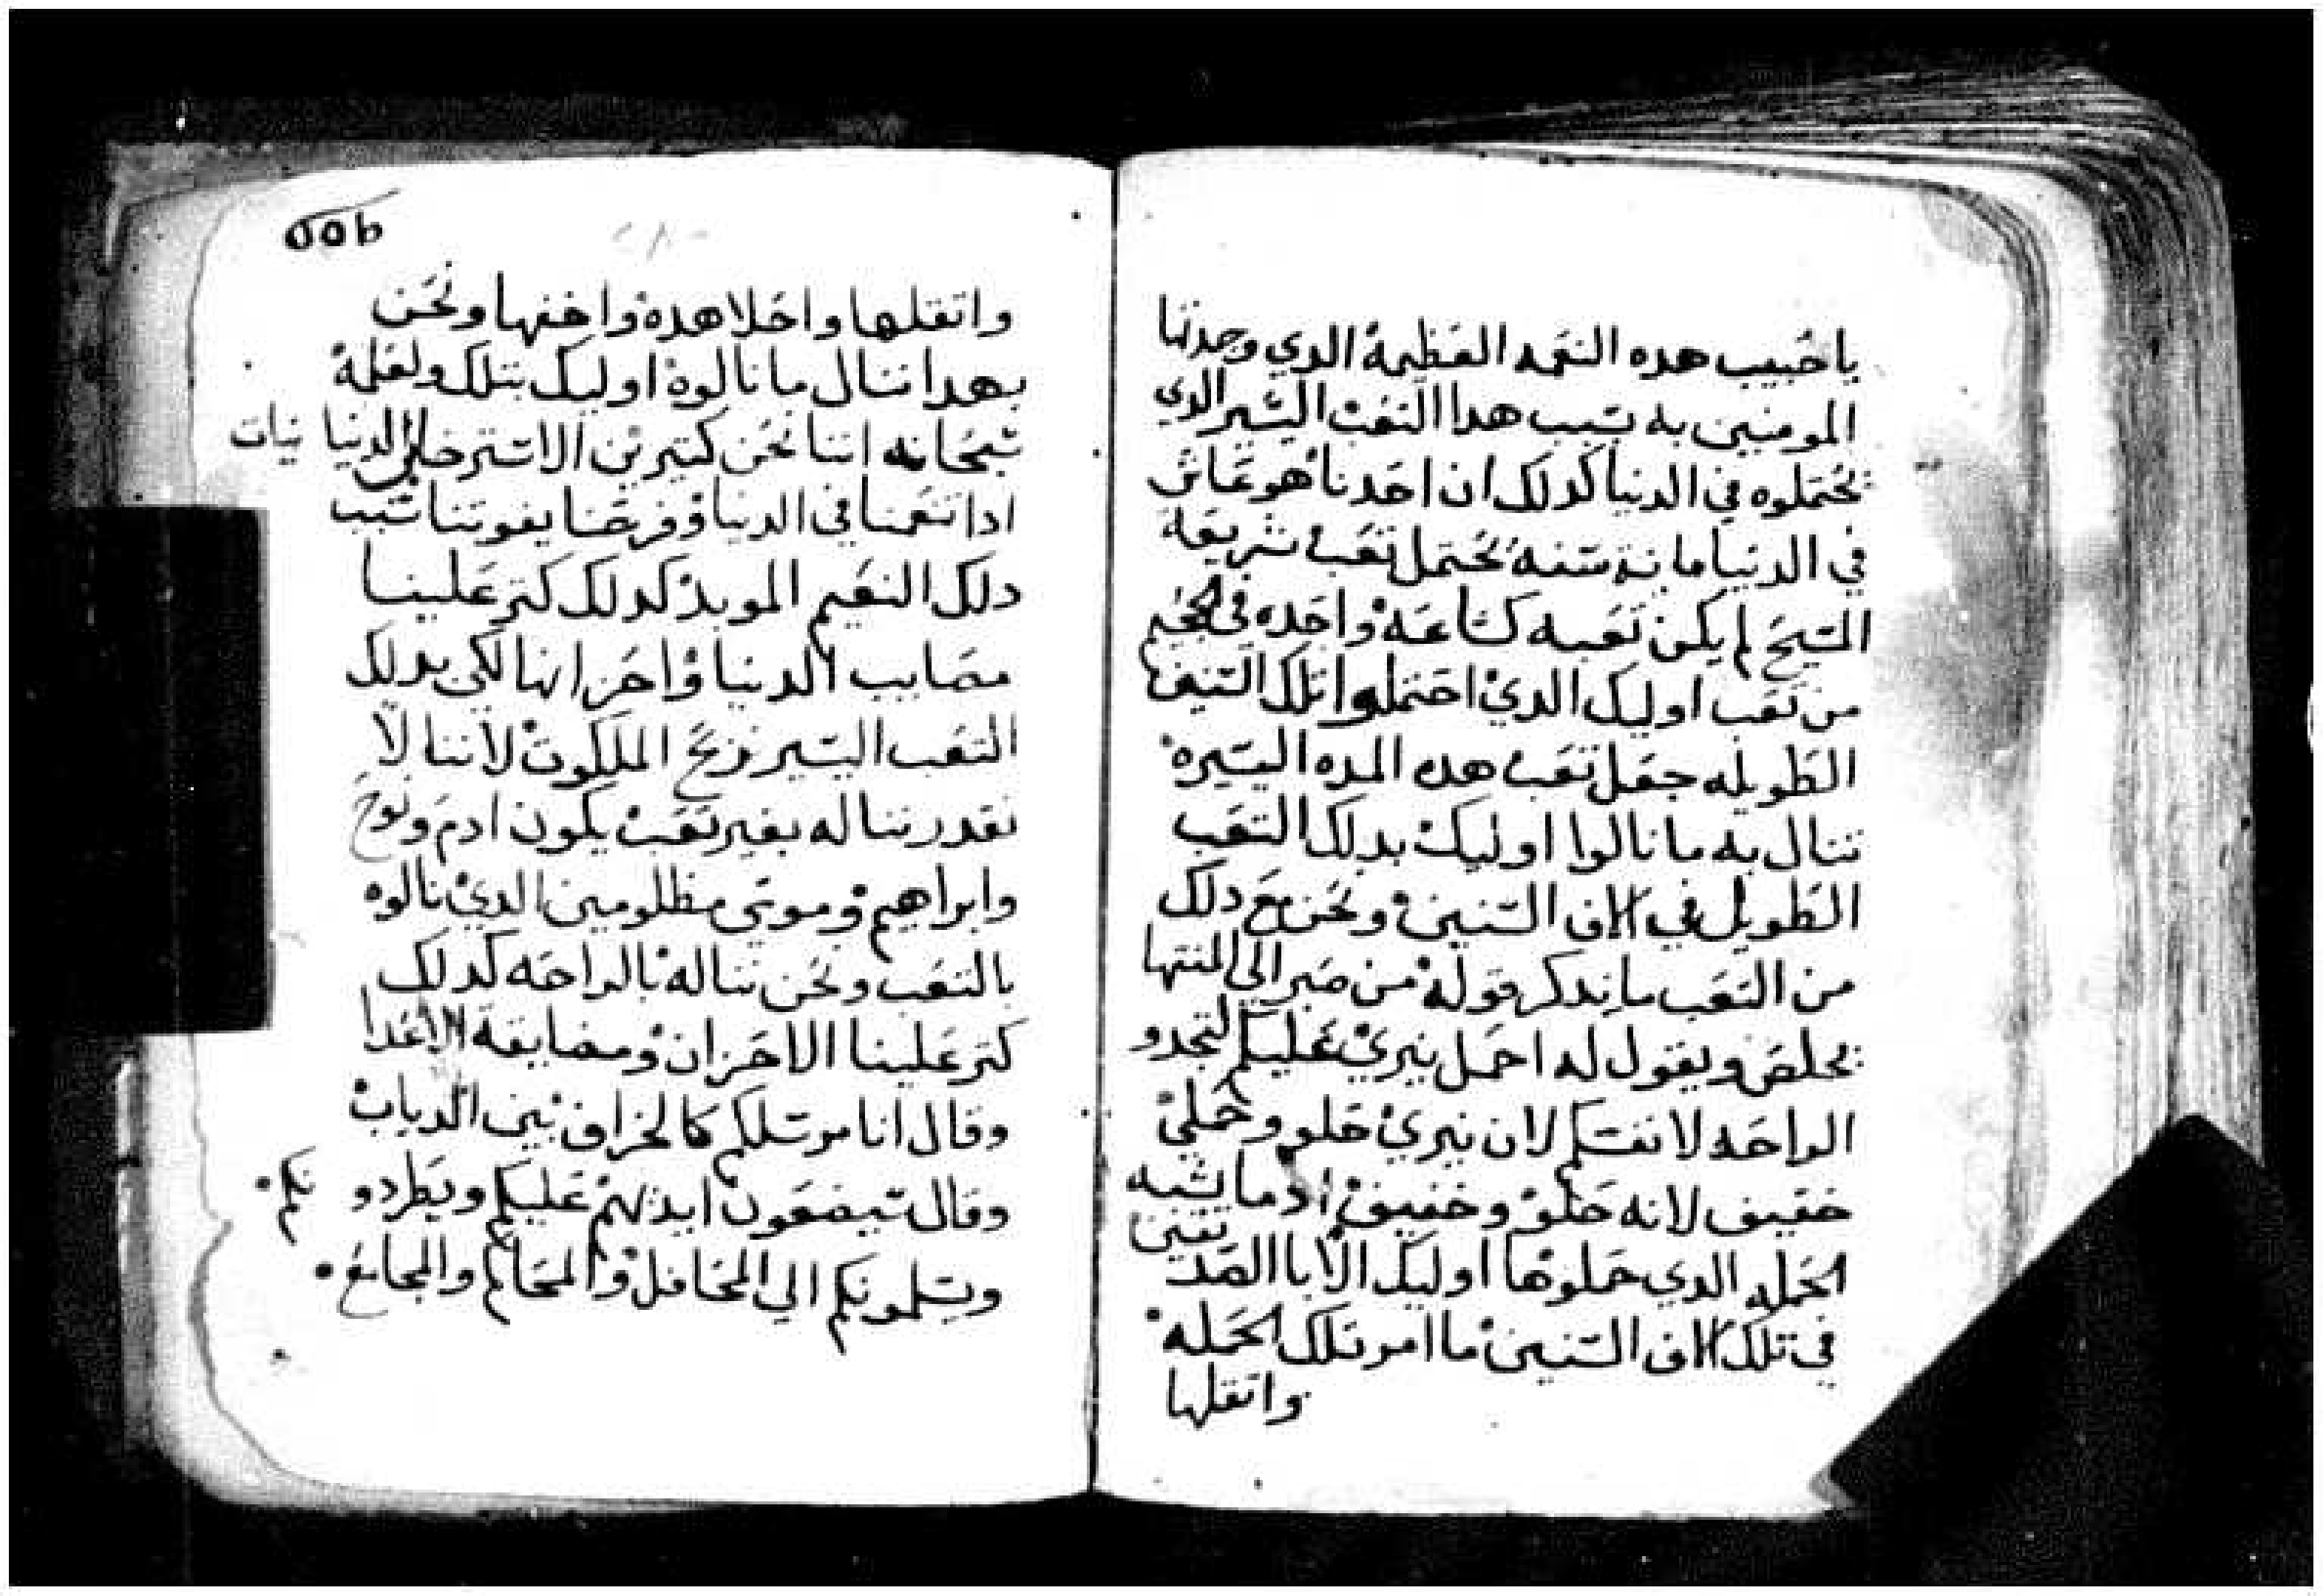 ياحبيب هده النعمه العظيمة الدي وجدتها
المومنين به بسبب هدا التعب اليسير الدي
يحتملوه في الدنيا كدلك ان احدنا هو عاش
في الدنيا ماية سنه يحتمل تعب شريعة
المسيح لم يكن تعبه كساعه واحده في الجحيم
من تعب اوليك الدي احتملوا تلك السنين
الطويله جعل تعب هده المده اليسيره
ننال به ما نالوا اوليك بدلك التعب
الطويل في الاف السنين ونحن مع دلك
من التعب ما ندكر قوله من صبر الي المنتها
يخلص ويقول له احمل نيري عليكم لتجدو
الراحه لانفسكم لان نيري حلو وحملي
خفيف لانه حلو وخفيف ادما يشبه
الحمله الدي حملوها اوليك الابا الصديقين
في تلك الاف السنين ما امر تلك الحمله
واتقلها
واتقلها واحلا هده واخفها ونحن
بهدا ننال ما نالوه اوليك بتلك ولعلمه
سبحانه اننا نحن كتيرين الاسترخا في الدنيا نيات
ادا تنعمنا في الدنيا وفرحنا يفوتنا بسبب
دلك النعيم الموبد كدلك كتر علينا
مصايب الدنيا واحزانها لكي بدلك
التعب اليسير نربح الملكوت لاننا لا
نقدر نناله بغير تعب يكون ادم ونوح
وابراهيم وموسي مظلومين الدي نالوه
بالتعب ونحن نناله بالراحه لدلك
كتر علينا الاحزان ومضايقة الاعدا
وقال انا مرسلكم كالخراف بين الدياب
وقال سيضعون ايديهم عليكم ويطردونكم
ويسلمونكم الي المحافل والمحاكم والمجامع